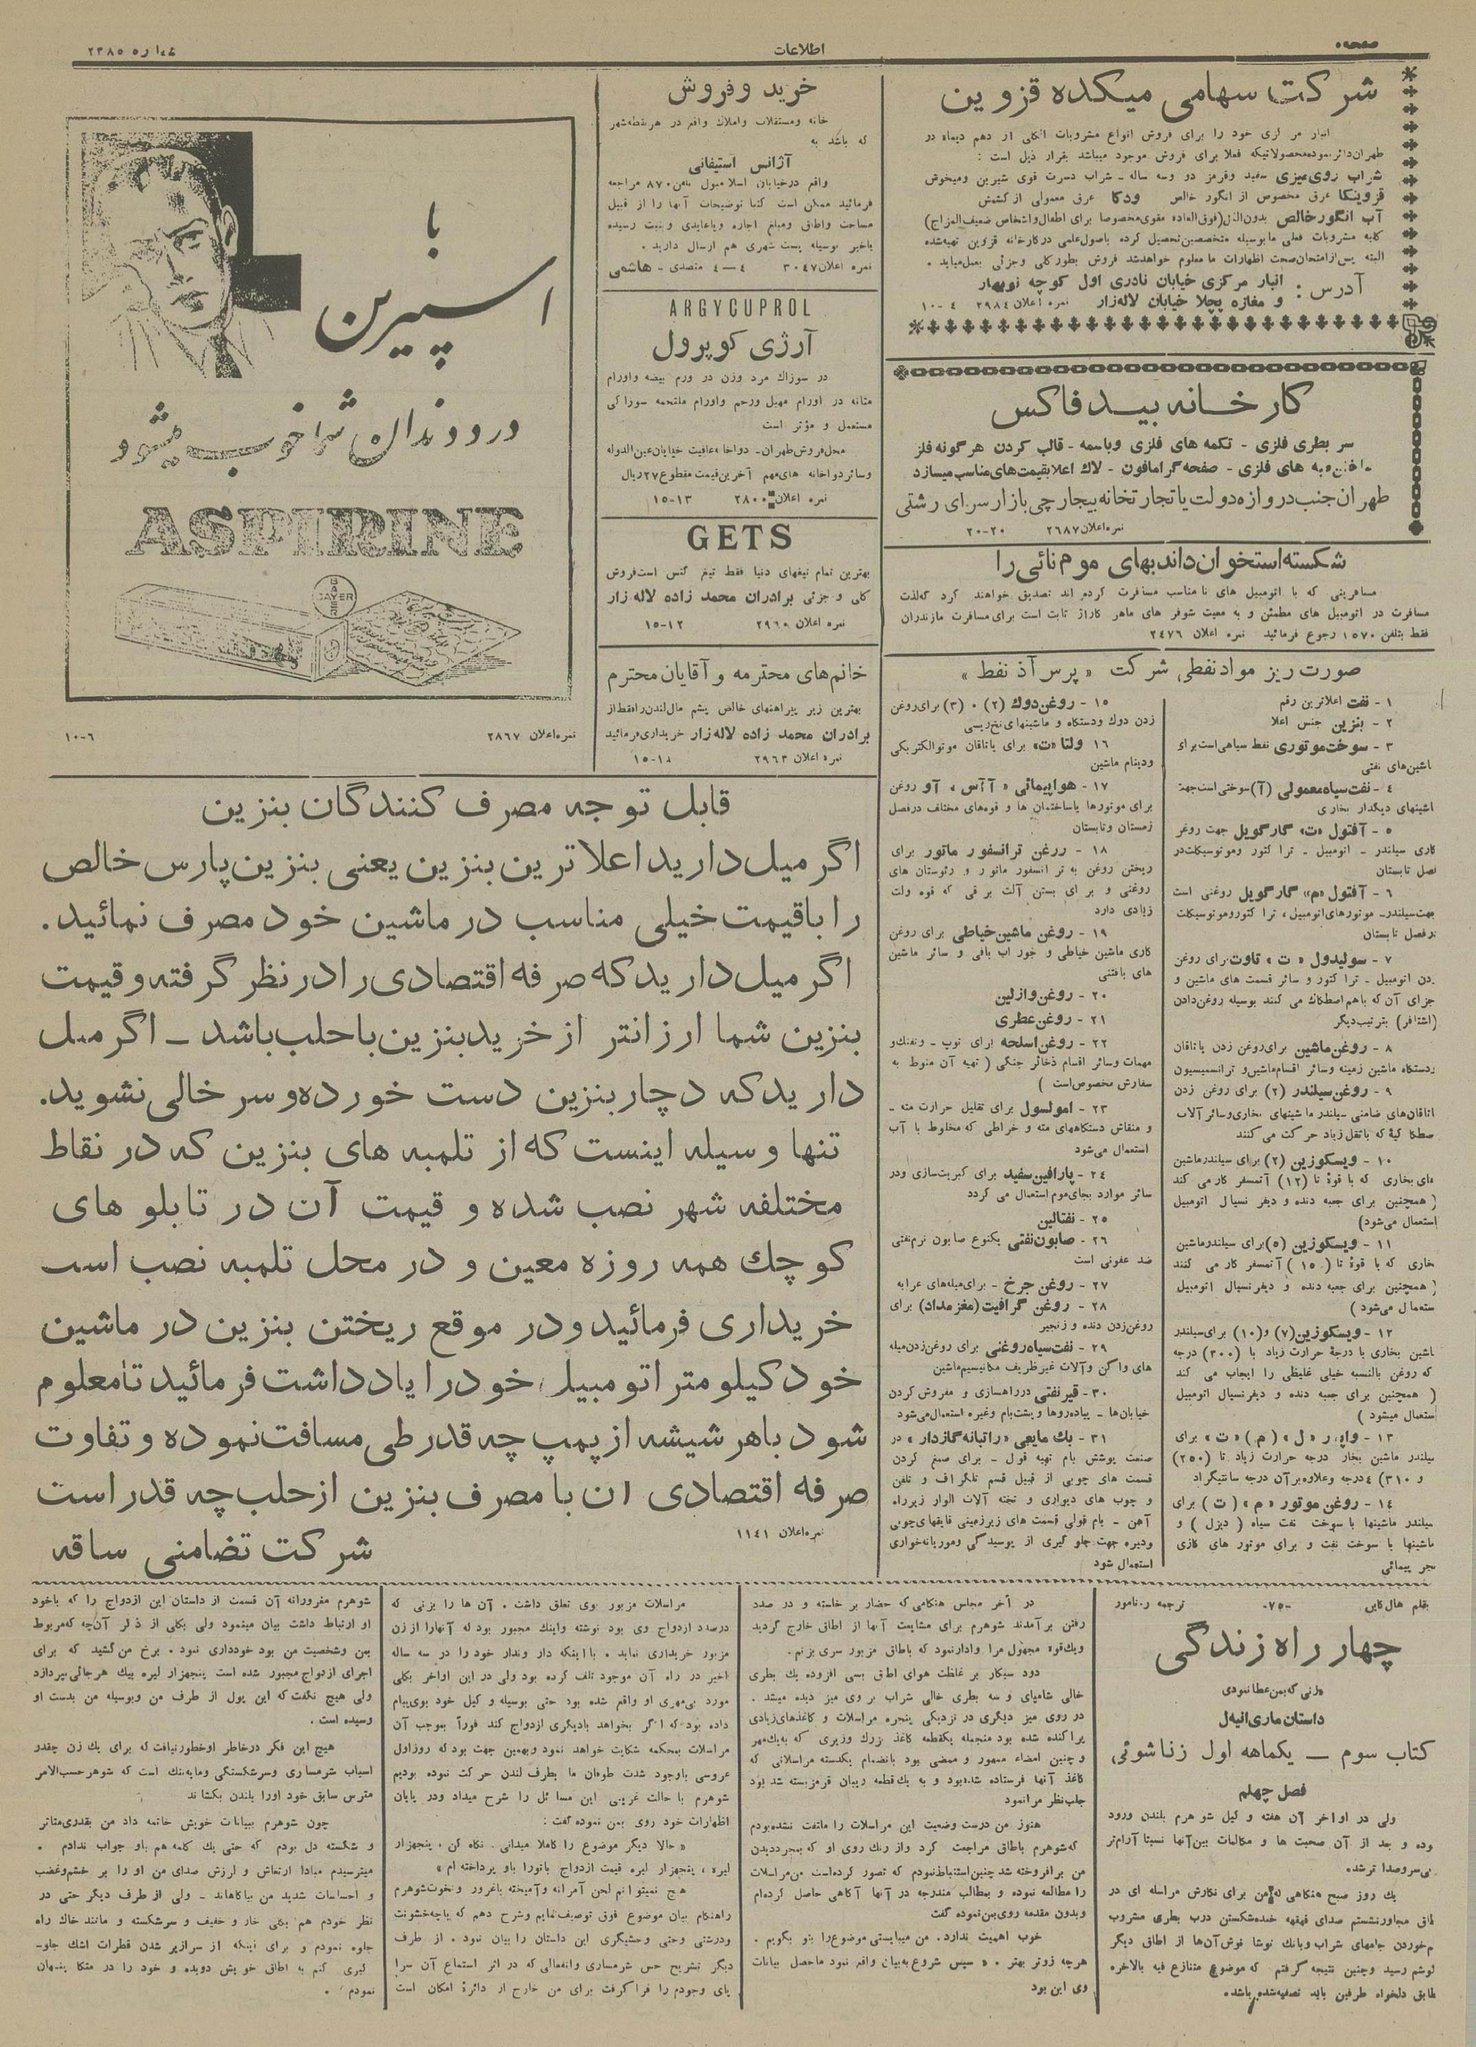 صفحه
اطلاعات
شماره ۲۳۸۵
شرکت سهامی میکده قزوین
انبار مرکزی خود را برای فروش انواع مشروبات الکلی از دهم دیماه در
طهران دائر نموده محصولاتیکه فعلا برای فروش موجود میباشد بقرار ذیل است :
شراب روی میزی سفید وقرمز دو وسه ساله - شراب دسرت قوی شیرین ومیخوش
قزوینکا عرق مخصوص از انگور خالص ودکا عرق معمولی از کشمش
آب انگور خالص بدون الکل (فوق العاده مقوی مخصوصا برای اطفال واشخاص ضعیف المزاج)
کلیه مشروبات فعلی ما بوسیله متخصصین تحصیل کرده باصول علمی در کارخانه قزوین تهیه شده
البته پس از امتحان صحت اظهارات ما معلوم خواهد شد فروش بطور کلی وجزئی بعمل میاید .
آدرس : انبار مرکزی خیابان نادری اول کوچه نوبهار
و مغازه پچلا خیابان لاله زار نمره اعلان ۲۹۸۴ ۴-۱۰
کارخانه بید فاکس
سر بطری فلزی - تکمه های فلزی وباسمه - قالب کردن هر گونه فلز
ساختن جعبه های فلزی - صفحه گرامافون - لاك اعلا بقیمت های مناسب میسازد
طهران جنب دروازه دولت یا تجارتخانه بیجارچی بازار سرای رشتی
نمره اعلان ۲۶۸۷ ۲۰-۲۰
شکسته استخوان داند بهای مومنائی را
مسافرینی که با اتومبیل های نا مناسب مسافرت کرده اند تصدیق خواهند کرد که لذت
مسافرت در اتومبیل های مطمئن و به معیت شوفر های ماهر کاراژ ثابت است برای مسافرت مازندران
فقط بتلفن ۱۵۷۰ رجوع فرمائید نمره اعلان ۲۴۷۶
صورت ریز مواد نفطی شرکت « پرس آذ نفط »
۱ - نفت اعلاترین رقم
۲ - بنزین جنس اعلا
۳ - سوخت موتوری نفط سیاهی است برای
ماشین های نفتی
۴ - نفت سیاه معمولی (آ) سوختی است جهت
ماشینهای دیگدار بخاری
۵ - آفتول «ت» گارگویل جهت روغن
کاری سیلندر - اتومبیل - تراکتور وموتوسیکلت در
فصل تابستان
۶ - آفتول «م» گارگویل روغنی است
جهت سیلندر - موتورهای اتومبیل ، تراکتور وموتوسیکلت
در فصل تابستان
۷ - سولیدول « ت » تاوت برای روغن
زدن اتومبیل - تراکتور و سائر قسمت های ماشین و
اجزای آن که باهم اصطکاك می کنند بوسیله روغن دادن
(اشتافر) بترتیب دیگر
۸ - روغن ماشین برای روغن زدن یاتاقان
ودستگاه ماشین زمینه وسائر اقسام ماشین و ترانسمیسیون
۹ - روغن سیلندر (۲) برای روغن زدن
یاتاقان های ضامنی - سیلندر ماشینهای بخاری وسائر آلات
اصطکاکیه که باثقل زیاد حرکت می کنند
۱۰ - ویسکوزین (۲) برای سیلندر ماشین
های بخاری که با قوهٔ تا (۱۲) آتمسفر کار می کند
( همچنین برای جعبه دنده و دیفرنسیال اتومبیل
استعمال می شود)
۱۱ - ویسکوزین (۵) برای سیلندر ماشین
بخاری که با قوهٔ تا ( ۱۵ ) آتمسفر کار می کنند
( همچنین برای جعبه دنده و دیفرنسیال اتومبیل
استعمال می شود )
۱۲ - ویسکوزین (۷) و (۱۰) برای سیلندر
ماشین بخاری با درجه حرارت زیاد با (۳۰۰) درجه
که روغن بالنسبه خیلی غلیظی را ایجاب می کند
( همچنین برای جعبه دنده و دیفرنسیال اتومبیل
استعمال میشود )
۱۳ - واپور «ل» (م) «ت» برای
سیلندر ماشین بخار درجه حرارت زیاد تا (۲۵۰)
و ۳۱۰) درجه وعلاوه بر آن درجه سانتیگراد
۱۴ - روغن موتور « م » ( ت ) برای
سیلندر ماشینها با سوخت نفت سیاه ( دیزل ) و
ماشینها با سوخت نفت و برای موتور های گازی
بحر پیمائی
۱۵ - روغن دوك (۲) ۰ (۳) برای روغن
زدن دوك ودستگاه و ماشینهای نخ ریسی
۱۶ ولتا «ت» برای یاتاقان موتور الکتریکی
ودینام ماشین
۱۷ - هواپیمائی « آآس ، آو روغن
برای موتورها یا ساختمان ها و قوه های مختلف در فصل
زمستان وتابستان
۱۸ - روغن ترانسفورماتور برای
ریختن روغن به ترانسفورماتور و رئوستان های
روغنی و برای بستن آلت برقی که قوه ولت
زیادی دارد
۱۹ - روغن ماشین خیاطی برای روغن
کاری ماشین خیاطی و جوراب بافی و سائر ماشین
های بافتنی
۲۰ - روغن وازلین
۲۱ - روغن عطری
۲۲ - روغن اسلحه برای توپ - وتفنك و
مهمات وسائر اقسام ذخائر جنگی ( تهیه آن منوط به
سفارش مخصوص است )
۲۳ - امولسول برای تقلیل حرارت مته -
و منقاش دستگاههای مته و خراطی که مخلوط با آب
استعمال می شود
۲۴ - پارافین سفید برای کبریت سازی ودر
سائر موارد بجای موم استعمال می گردد
۲۵ - نفتالین
۲۶ - صابون نفتی یکنوع صابون نرم نفتی
ضد عفونی است
۲۷ - روغن چرخ - برای میله های عرابه
۲۸ - روغن گرافیت (مغز مداد) برای
روغن زدن دنده و زنجیر
۲۹ - نفت سیاه روغنی برای روغن زدن میله
های واگن و آلات غیر ظریف مکانیسم ماشین
۳۰ - قیر نفتی در راهسازی و مفروش کردن
خیابان ها - پیاده روها و پشت بام وغیره استعمال می شود
۳۱ - بك مایعی « راتبانه گازدار » در
صنعت پوشش بام تهیه قول - برای صمغ کردن
قسمت های چوبی از قبیل قسم تلگراف و تلفن
و چوب های دیواری و تخته آلات الوار زیر راه
آهن - بام قولی قسمت های زیرزمینی قایقهای چوبی
وغیره جهت جلوگیری از پوسیدگی وموریانه خواری
استعمال شود
خرید و فروش
خانه ومستغلات واملاك واقع در هر نقطه شهر
که باشد به
آژانس استیفانی
واقع در خیابان اسلامبول تلفن ۸۷۰ مراجعه
فرمائید ممکن است کتبا توضیحات آنها را از قبیل
مساحت واطاق ومبلغ اجاره ویا عایدی و بثبت رسیده
یا خیر بوسیله پست شهری هم ارسال دارید .
نمره اعلان ۳۰۴۷ ۴-۴ متصدی - هاشمی
ARGYCUPROL
آرژی کوپرول
در سوزاك مرد وزن در ورم بیضه واورام
مثانه در اورام مهبل ورحم واورام ملتحمه سوزاکی
مستعمل و مؤثر است
محل فروش طهران - دواخانه عافیت خیابان عین الدوله
وسائر دواخانه های مهم آخرین قیمت مقطوع ۲۷ ریال
نمره اعلان ۲۸۰۰ ۱۳-۱۵
GETS
بهترین تمام تیغهای دنیا فقط تیغ گتس است فروش
کلی و جزئی برادران محمد زاده لاله زار
نمره اعلان ۲۹۶۰ ۱۲-۱۵
خانم های محترمه و آقایان محترم
بهترین زیر پیراهنهای خالص پشم مال لندن را فقط از
برادران محمد زاده لاله زار خریداری فرمائید
نمره اعلان ۲۹۶۳
با
اسپیرین
درد دندان شما خوب میشود
ASPIRINE
BAYER
نمره اعلان ۲۸۶۷ ۶-۱۰
قابل توجه مصرف کنندگان بنزین
اگر میل دارید اعلا ترین بنزین یعنی بنزین پارس خالص
را باقیمت خیلی مناسب در ماشین خود مصرف نمائید.
اگر میل دارید که صرفه اقتصادی را در نظر گرفته وقیمت
بنزین شما ارزانتر از خرید بنزین با حلب باشد - اگر میل
دارید که دچار بنزین دست خورده و سر خالی نشوید.
تنها وسیله اینست که از تلمبه های بنزین که در نقاط
مختلفه شهر نصب شده و قیمت آن در تابلو های
کوچك همه روزه معین و در محل تلمبه نصب است
خریداری فرمائید ودر موقع ریختن بنزین در ماشین
خود کیلو متر اتومبیل خود را یادداشت فرمائید تا معلوم
شود با هر شیشه از پمپ چه قدر طی مسافت نموده و تفاوت
صرفه اقتصادی آن با مصرف بنزین از حلب چه قدر است
نمره اعلان ۱۱۴۱
شرکت تضامنی ساقه
بقلم هال کاین -۷۵- ترجمه ر . نامور
چهار راه زندگی
«زنی که بمن عطا نمودی
داستان ماری انیل
کتاب سوم - یکماهه اول زناشوئی
فصل چهلم
ولی در اواخر آن هفته وکیل شوهرم بلندن ورود
نموده و بعد از آن صحبت ها و مکالمات بین آنها نسبتا آرام تر
و بی سروصدا تر شد.
یك روز صبح هنگامی که من برای نگارش مراسله ای در
اطاق مجاور نشستم صدای قهقهه خنده شکستن درب بطری مشروب
بهم خوردن جامهای شراب وبانك نوشا نوش آن ها از اطاق دیگر
بگوشم رسید وچنین نتیجه گرفتم که موضوع متنازع فیه بالاخره
مطابق دلخواه طرفین باید تصفیه شده باشد.
در آخر مجلس هنگامی که حضار بر خاسته و در صدد
رفتن بر آمدند شوهرم برای مشایعت آنها از اطاق خارج گردید
ویك قوه مجهول مرا وادار نمود که باطاق مزبور سری بزنم.
دود سیگار بر غلظت هوای اطاق بسی افزوده یك بطری
خالی شامپای و سه بطری خالی شراب بر روی میز دیده میشد .
در روی میز دیگری در نزدیکی پنجره مراسلات و کاغذهای زیادی
پراکنده شده بود منجمله یکقطعه کاغذ بزرك وزیری که به یك مهر
وچنین امضاء ممهور و ممضی بود بانضمام یکدسته مراسلاتی که
کاغذ آنها فرستاده شده بود و به یك قطعه ریبان قرمز بسته شده بود
جلب نظر مرا نمود
هنوز من درست وضعیت این مراسلات را ملتفت نشده بودم
که شوهرم باطاق مراجعت کرد واز رنك روی او که بمجرد دیدن
من برافروخته شد چنین استنباط نمودم که تصور کرده است من مراسلات
را مطالعه نموده و بمطالب مندرجه در آنها آگاهی حاصل کرده ام
وبدون مقدمه روی بمن نموده گفت
خوب اهمیت ندارد. من میبایستی موضوع را بتو بگویم .
هرچه زوتر بهتر . « سپس شروع به بیان واقعه نمود ماحصل بیانات
وی این بود
مراسلات مزبور بوی تعلق داشت . آن ها را بزنی که
درصدد ازدواج وی بود نوشته واینك مجبور بود که آنها را از زن
مزبور خریداری نماید . با اینکه دار وندار خود را در سه ساله
اخیر در راه آن موجود تلف کرده بود ولی در این اواخر بکلی
مورد بی مهری او واقع شده بود حتی بوسیله وکیل خود بوی پیام
داده بود که اگر بخواهد بادیگری ازدواج کند فوراً بموجب آن
مراسلات بمحکمه شکایت خواهد نمود وبهمین جهت بود که روز اول
عروسی باوجود شدت طوفان ما بطرف لندن حرکت نموده بودیم
شوهرم با حالت غریبی این مسائل را شرح میداد ودر پایان
اظهارات خود روی بمن نموده گفت:
« حالا دیگر موضوع را کاملا میدانی . نگاه کن . پنجهزار
لیره ، پنجهزار لیره قیمت ازدواج باتو را باو پرداخته ام »
هیچ نمیتوانم لحن آمرانه وآمیخته باغرور و نخوت شوهرم را
هنگام بیان موضوع فوق توصیف نمایم وشرح دهم که باچه خشونت
ودرشتی وحتی وحشیگری این داستان را بیان نمود . از طرف
دیگر تشریح حس شرمساری وانفعالی که در اثر استماع آن سرا
پای وجودم را فرا گرفت برای من خارج از دائرهٔ امکان است
شوهرم مغرورانه آن قسمت از داستان این ازدواج را که باخود
او ارتباط داشت بیان مینمود ولی بکلی از ذکر آن چه که مربوط
بمن وشخصیت من بود خودداری نمود . برخ من کشید که برای
اجرای ازدواج مجبور شده است پنجهزار لیره بیك هرجائی بپردازد
ولی هیچ نگفت که این پول از طرف من وبوسیله من بدست او
رسیده است .
هیچ این فکر در خاطر او خطور نیافت که برای یك زن چقدر
اسباب شرمساری وسرشکستگی ومایه ننك است که شوهر حسب الامر
مترس سابق خود اورا بلندن بکشاند
چون شوهرم ببیانات خویش خاتمه داد من بقدری متاثر
و شکسته دل بودم که حتی یك کلمه هم باو جواب ندادم .
میترسیدم مبادا ارتعاش و لرزش صدای من او را بر خشم وغضب
و احساسات شدید من بیاگاهاند - ولی از طرف دیگر حتی در
نظر خودم هم بکلی خار و خفیف و سرشکسته و مانند خاك راه
جلوه نمودم و برای اینکه از سرازیر شدن قطرات اشك جلو-
گیری کنم به اطاق خویش دویده و خود را در متکا پنهان
نمودم .